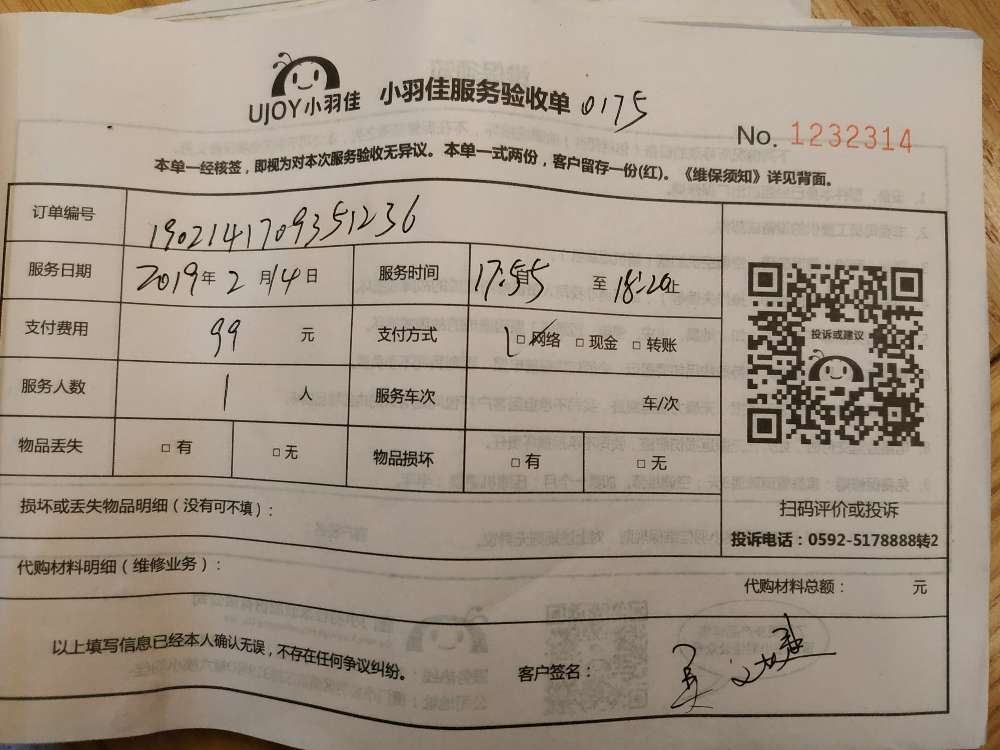 UJOY小羽佳 小羽佳服务验收单 0175
No. 1232314
本单一经核签，即视为对本次服务验收无异议。本单一式两份，客户留存一份(红)。《维保须知》详见背面。
订单编号 1902141709351236
服务日期 2019年2月14日 服务时间 17:55 至 18:20止
支付费用 99 元 支付方式 □网络 □现金 □转账
投诉或建议
服务人数 1 人 服务车次 车/次
物品丢失 □有 □无 物品损坏 □有 □无
损坏或丢失物品明细（没有可不填）：
扫码评价或投诉
投诉电话：0592-5178888转2
代购材料明细（维修业务）：
代购材料总额： 元
以上填写信息已经本人确认无误，不存在任何争议纠纷。
客户签名：